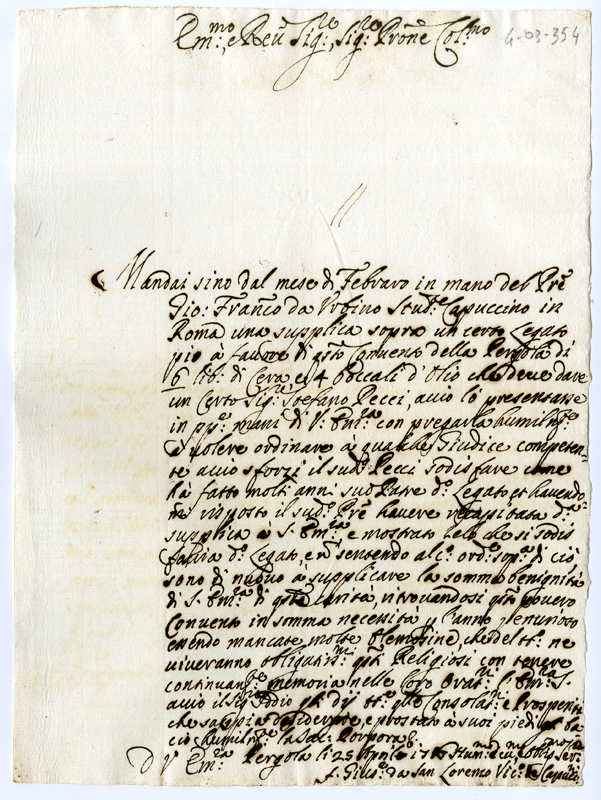 Em.mo, e Reu.mo Sig.re, Sig.re Prone Col.mo
4-03-354
Mandai sino dal mese di Febraro in mano del Pre
Gio: Franco da Vrbino Stud.te Capuccino in
Roma una supplica sopra un certo Legato
pio à fauore di qsto Conuento della Pergola di
6 lib: di Cera e 4 boccali d'olio che deue dare
un certo Sig.re Stefano Pecci, acciò lo presentasse
in mani di V: Em.za con pregarla humilm.te
à volere ordinare à qualche Giudice competen-
te acciò sforzi il sud.o Pecci sodisfare come
hà fatto molti anni suo Padre d.o Legato, et hauendo
mi risposto il sud.o Pre hauere recapitata d.a
supplica à S. Em.za e mostratole che si sodis
faria d.o Legato, e nō sentendo alc.o ord.e sop.a di ciò
sono di nuouo à supplicare la somma benignità
di S. Em.za di qsta carità, ritrouandosi qsto pouero
Conuento in somma necessità p l'anno penurioso
essendo mancate molte elemosine, che del tt.o ne
viueranno obligatis.mi qsti Religiosi con tenere
continuam.te memoria nelle loro Orat.ni S. Em.za S.
acciò il Sig. Iddio gli dij tt.e qlle Consolat.ni e prosperità
che sappia desiderare, e prostrato à suoi piedi gli ba
cio humilm.te la Sac: Porpora
D V Em.za Pergola li 25 Aprile Hum.mo Deu.mo Oblig.mo Ser.re
f. Gius.e da San Lorenzo Vic.o Capuc.o